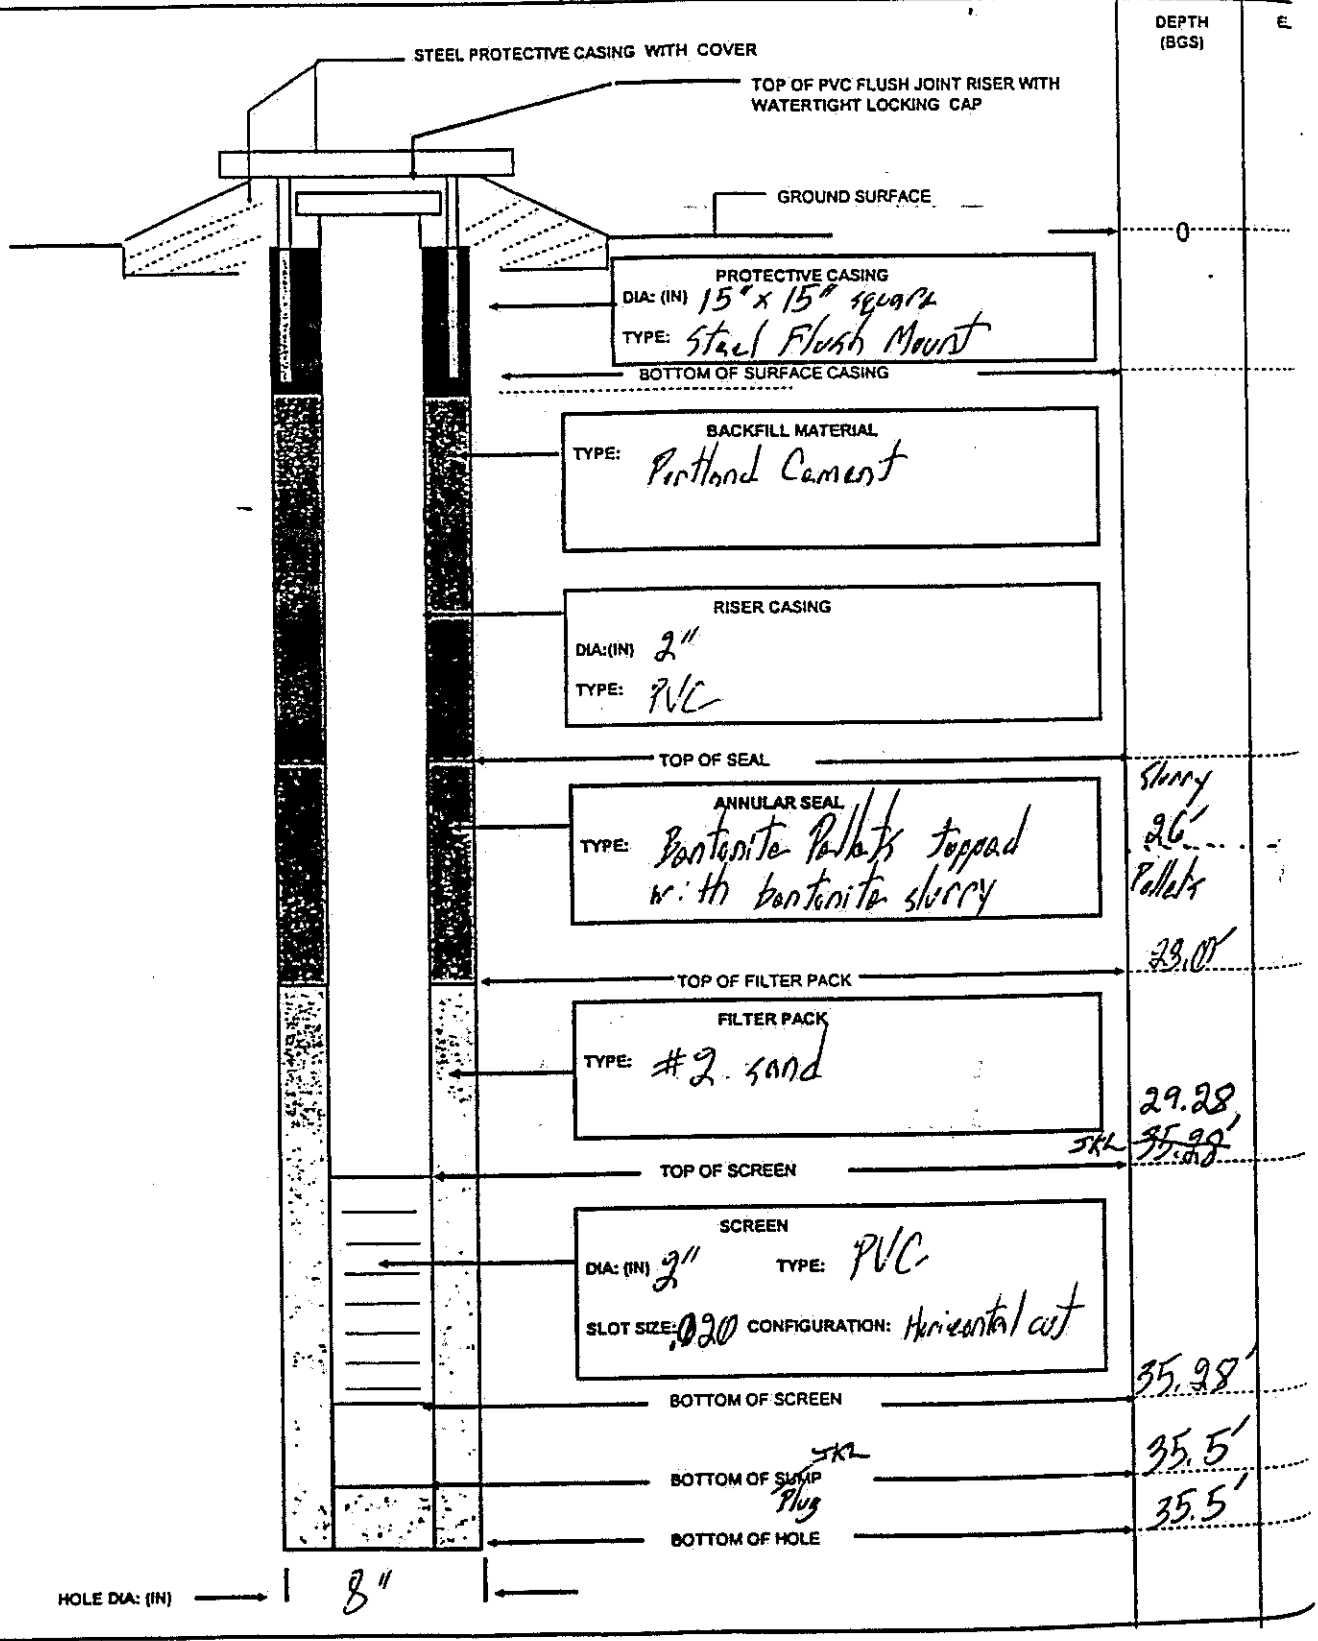 DEPTH
(BGS)
E
STEEL PROTECTIVE CASING WITH COVER
TOP OF PVC FLUSH JOINT RISER WITH
WATERTIGHT LOCKING CAP
GROUND SURFACE
0
PROTECTIVE CASING
DIA: (IN) 15" x 15" square
TYPE: Steel Flush Mount
BOTTOM OF SURFACE CASING
BACKFILL MATERIAL
TYPE: Portland Cement
RISER CASING
DIA:(IN) 2"
TYPE: PVC
TOP OF SEAL
Slurry
ANNULAR SEAL
TYPE: Bentonite Pellets topped
with bentonite slurry
26'
Pellets
TOP OF FILTER PACK
FILTER PACK
TYPE: #2 sand
29.28'
JKL 35.28'
TOP OF SCREEN
SCREEN
DIA: (IN) 2" TYPE: PVC
SLOT SIZE: .020 CONFIGURATION: Horizontal cut
BOTTOM OF SCREEN 35.28'
JKL
BOTTOM OF SUMP 35.5'
Plug
BOTTOM OF HOLE 35.5'
HOLE DIA: (IN) 8"